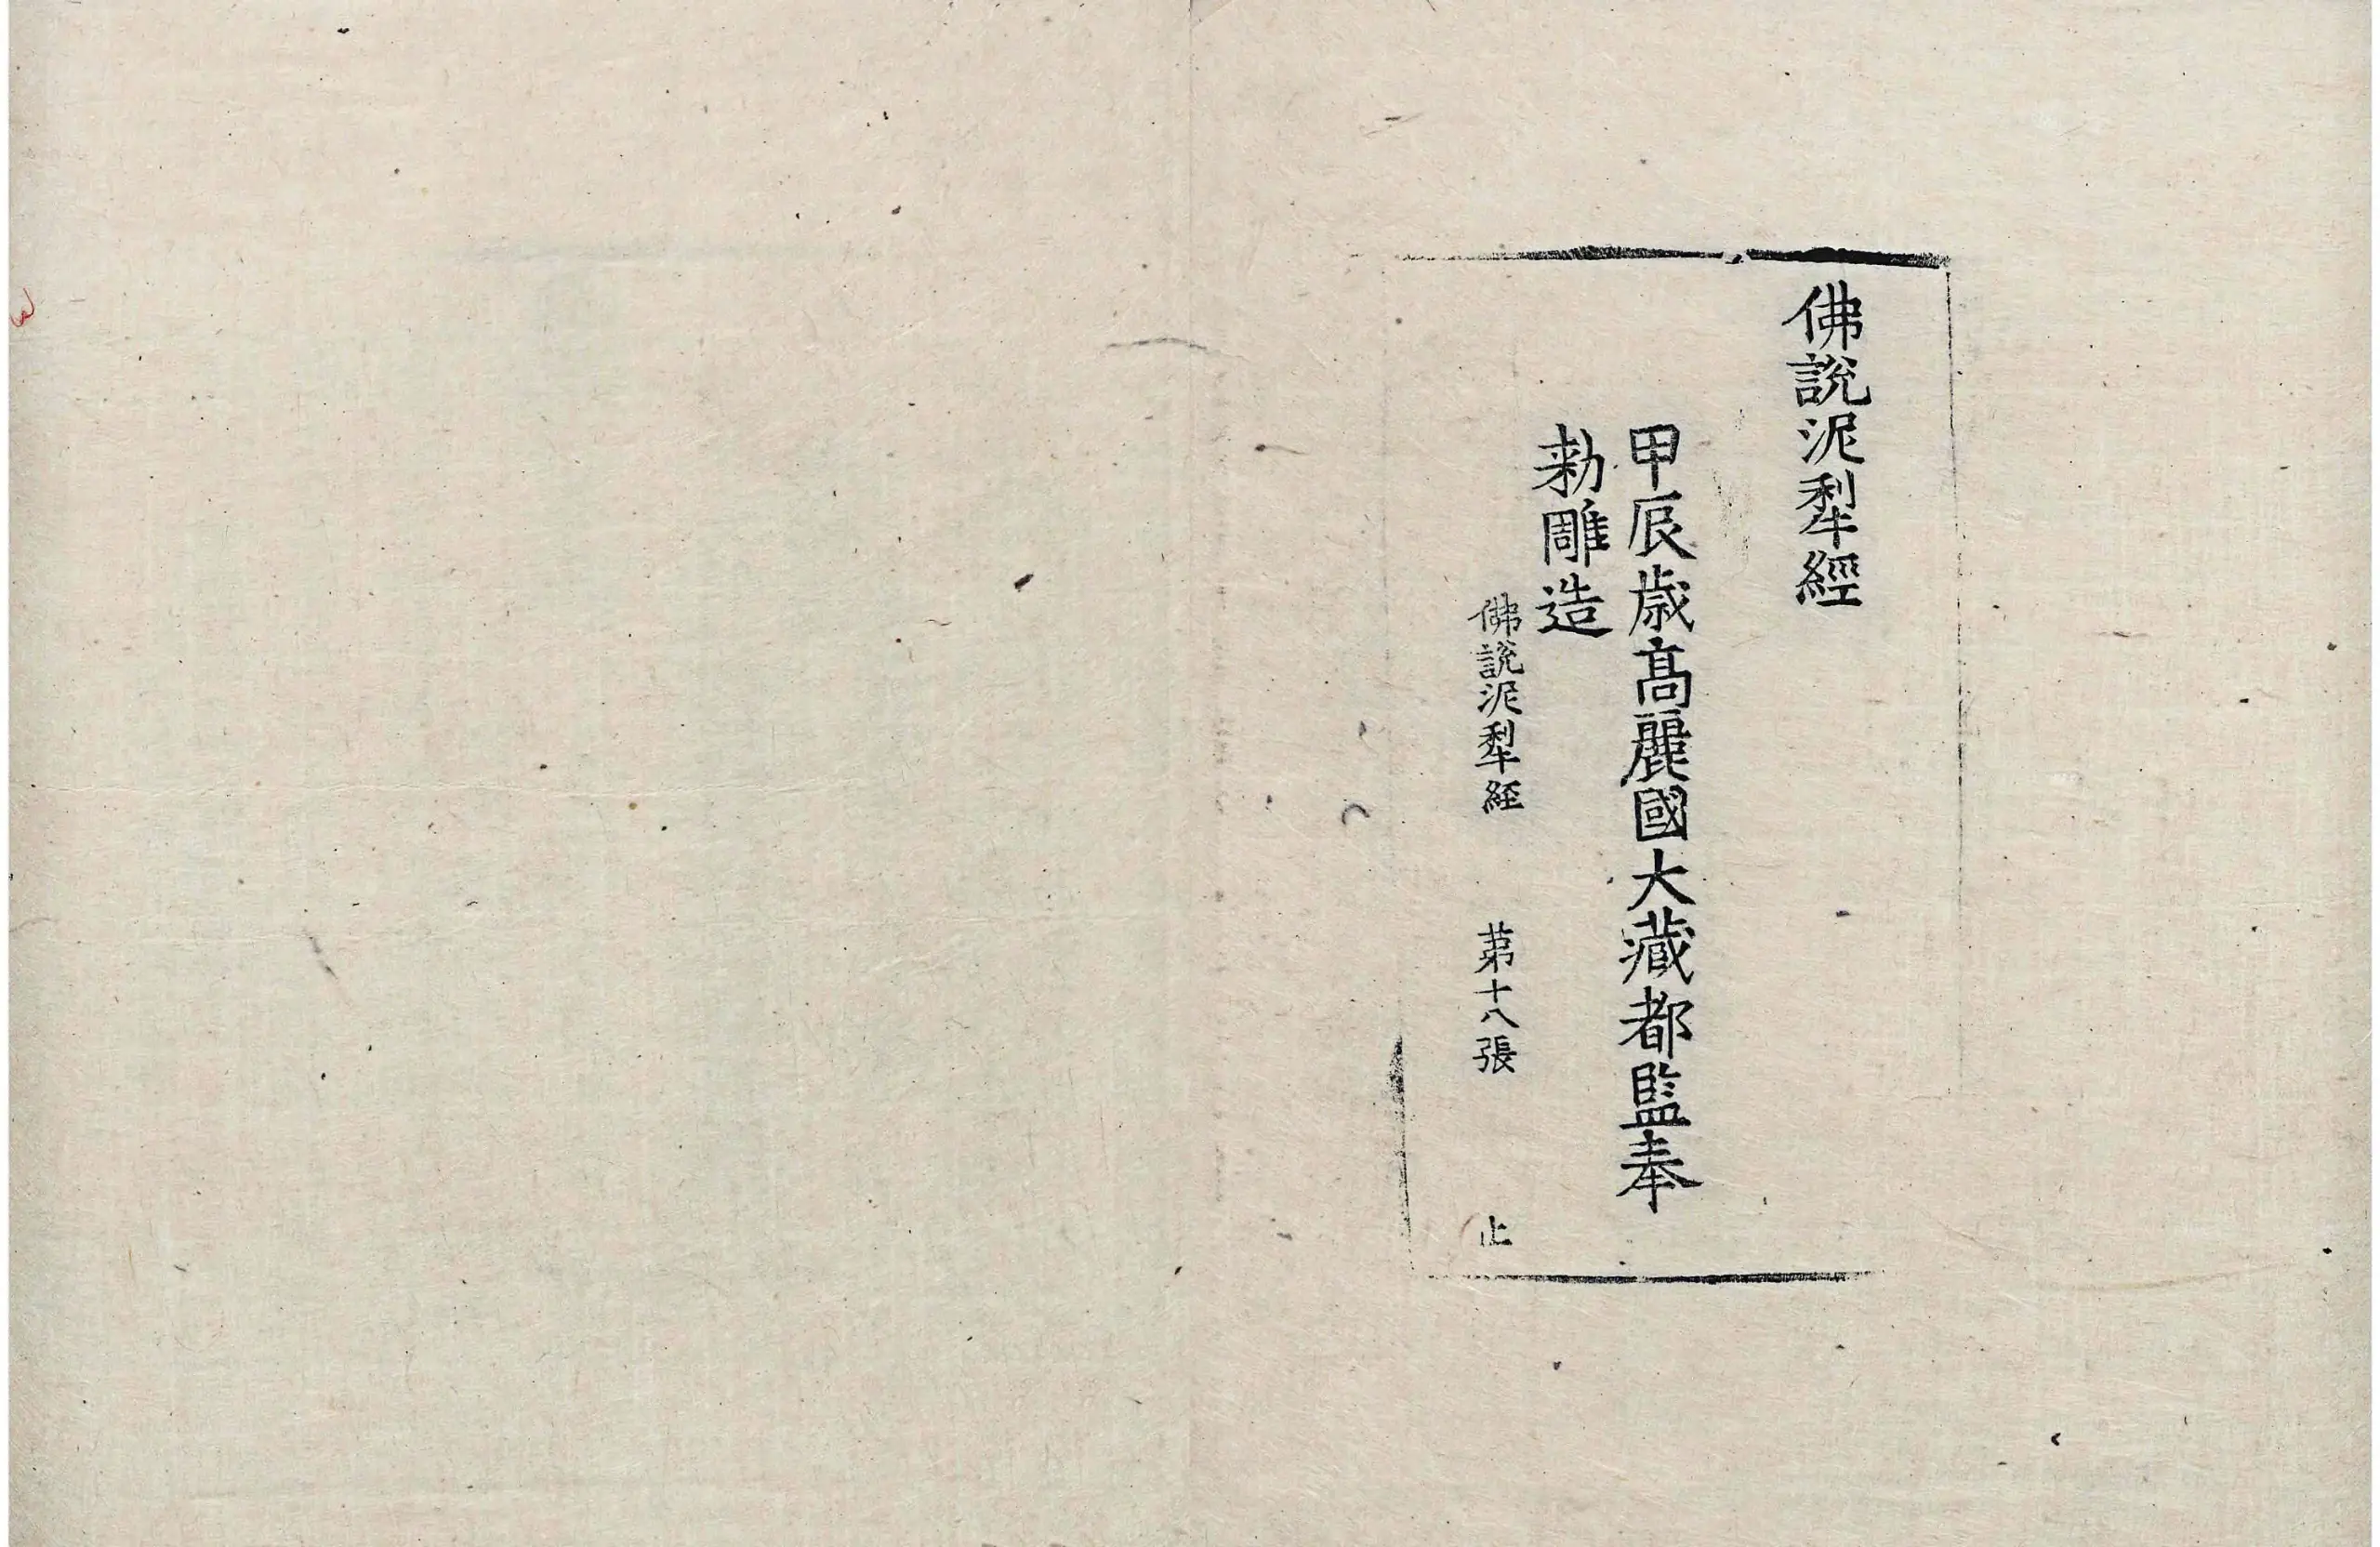 佛說泥犁經
甲辰歲高麗國大藏都監奉
勑雕造
佛說泥犁経 苐十八張 止